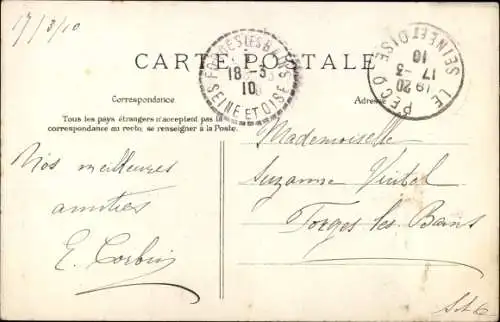 17/3/10
CARTE POSTALE
FORGES LES BAINS
18-3
10
SEINE ET OISE
LE PECQ
19 20
17-3
10
SEINE ET OISE
Correspondance
Adresse
Tous les pays étrangers n'acceptent pas la
correspondance au recto; se renseigner à la Poste.
Nos meilleures
amitiés
E. Corbin
Mademoiselle
Suzanne
Forges les Bains